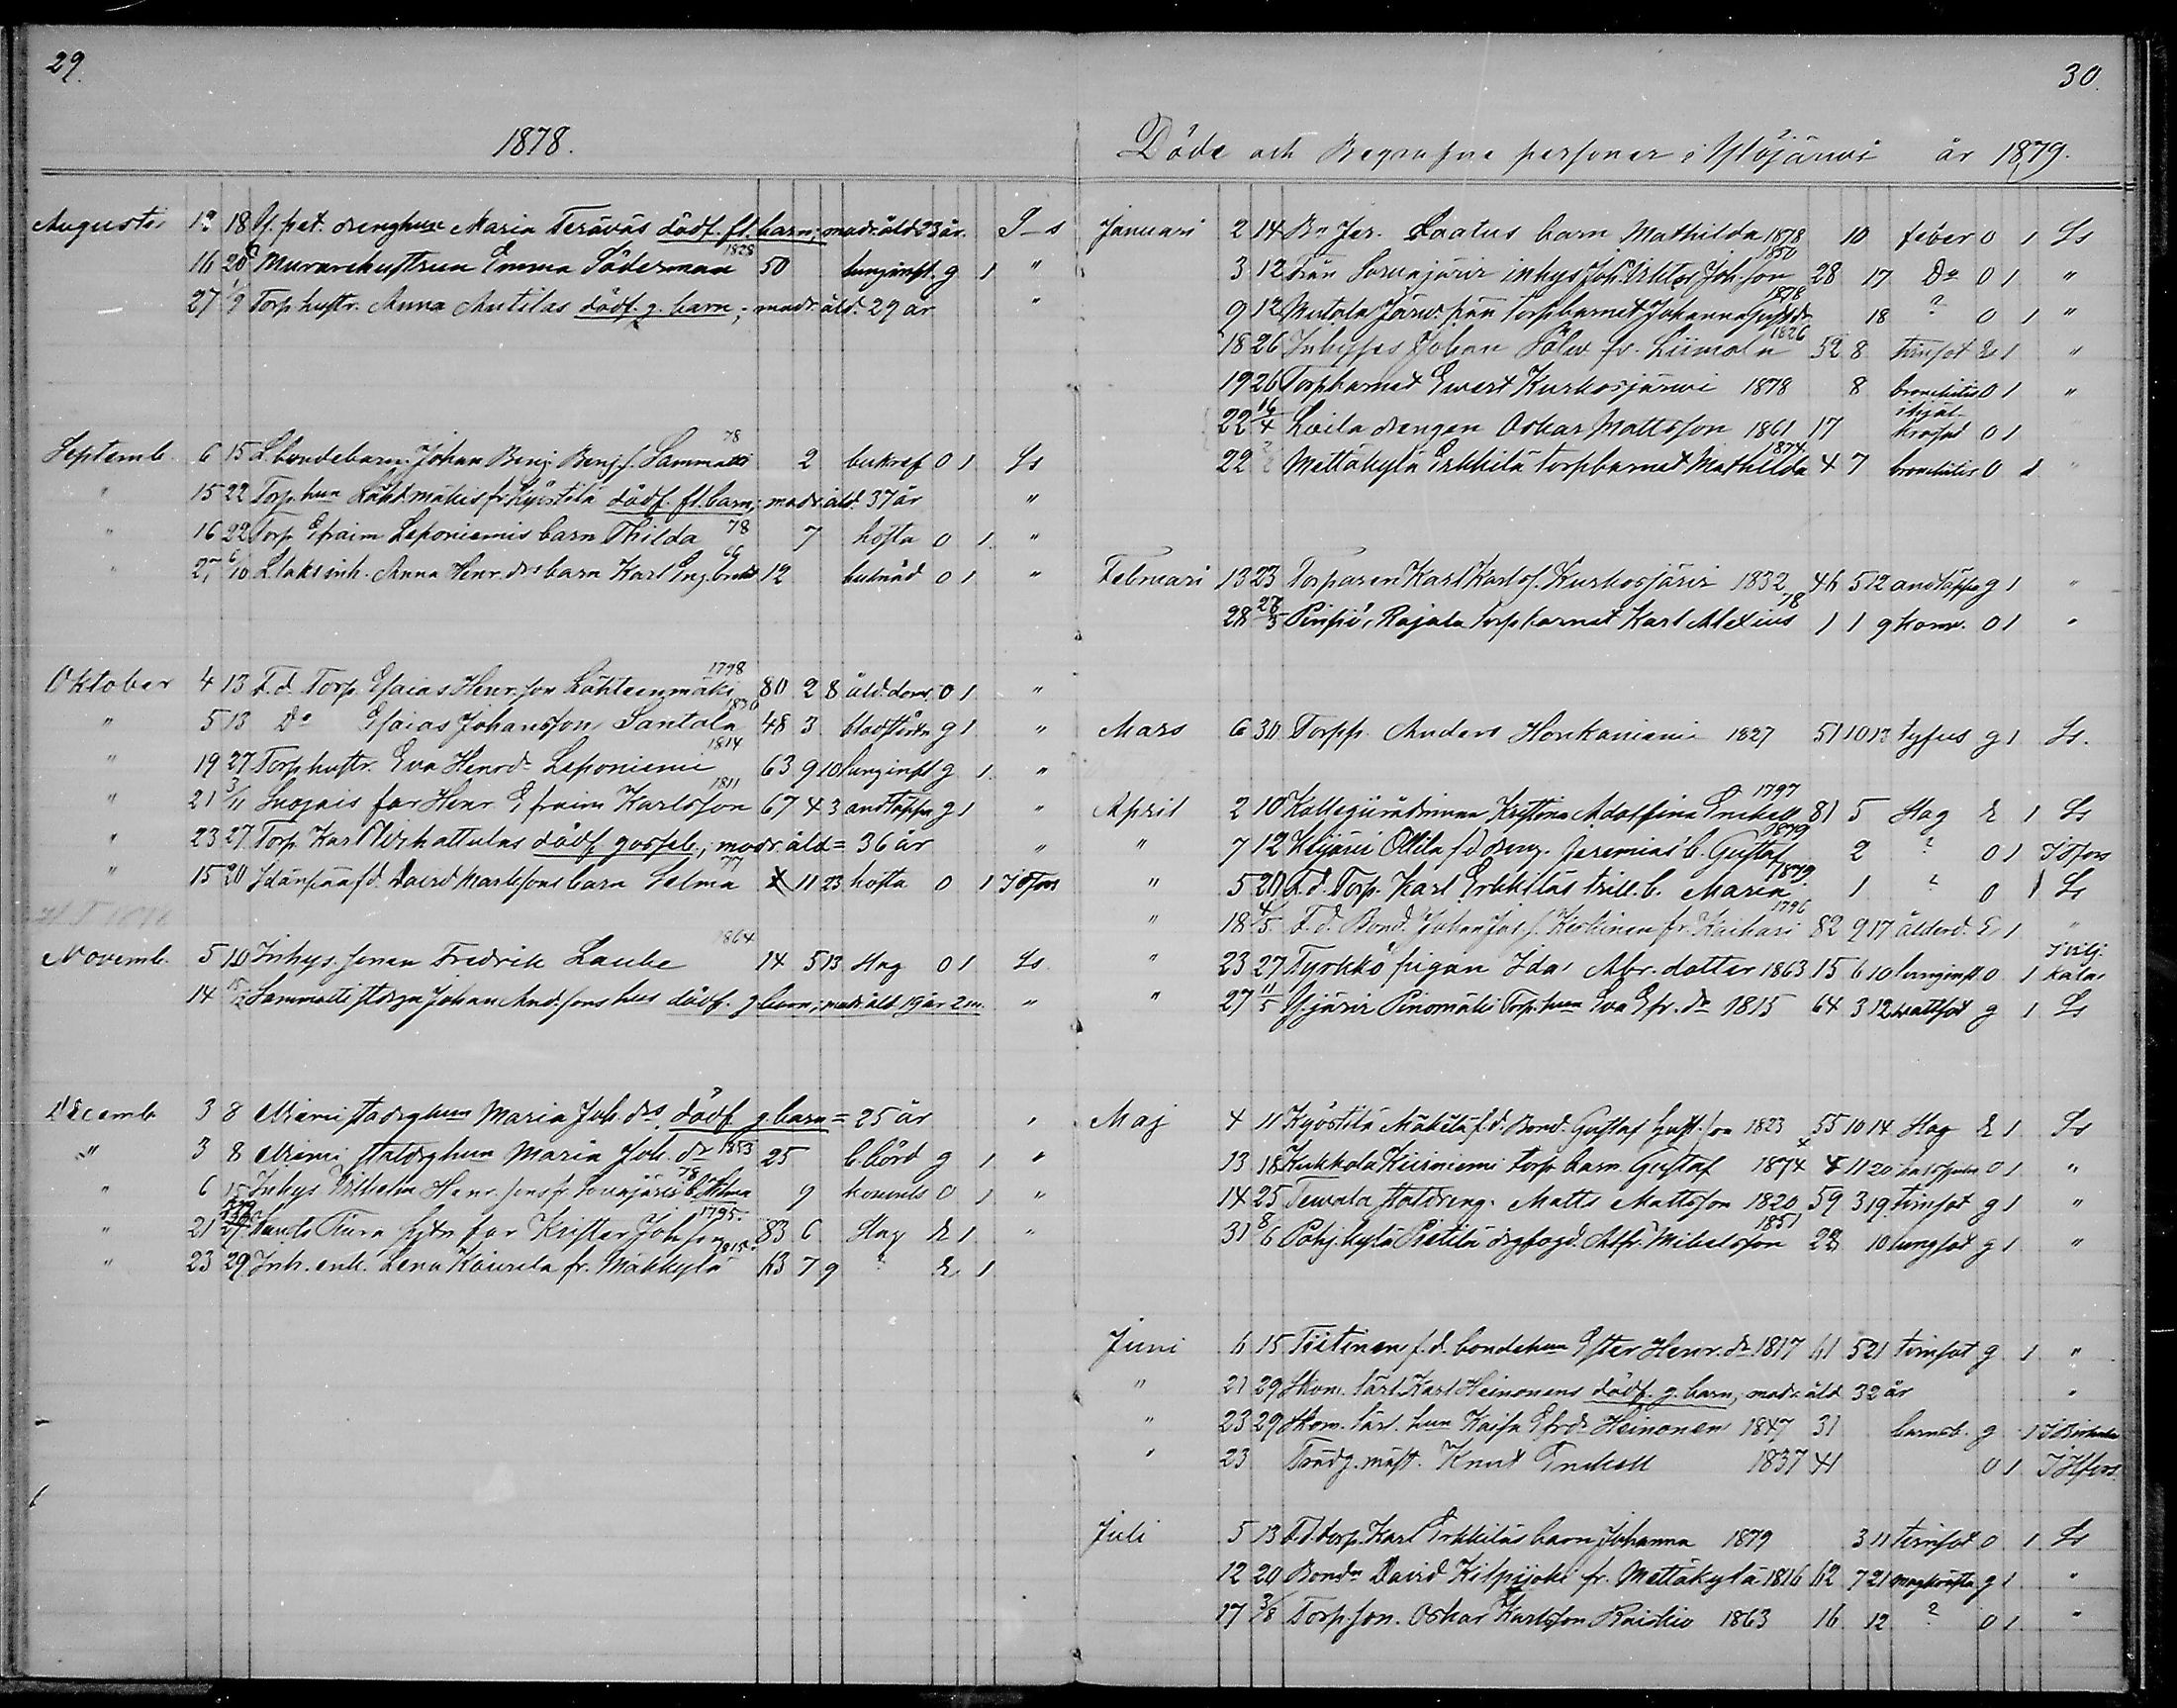 29.
1878.
Augusti 12 18 Y. pet. drenghun Maria Teräväs dödf. fl. barn; modr. åld 23 år. S-s
16 20 Murarehustrun Emma Söderman 1828 50 lunginfl. g 1 "
27 1/9 Torp. hustr. Anna Antilas dödf. g. barn; modr. åld. 29 år "
Septemb. 6 15 L. bondebarn. Johan Benj. Benj. s. Sammatti 78 2 0 1 Ls
" 15 22 Torp. hun Lähtmäkis fr. Kyöstilä dödf. fl. barn; modr. åld. 37 år "
" 16 22 Torp. Efraim Leponiemis barn Thilda 78 7 hosta 0 1 "
" 27 6/10 L. laks inh. Anna Henr. drs barn Karl 66 12 0 1 "
Oktober 4 13 F.d. Torp. Esaias Henr. son Lähteenmäki 1798 80 2 8 åld. dom. 0 1 "
" 5 13 Do Esaias Johansson Santala 1830 48 3 blodstörtn g 1 "
" 19 27 Torp hustr. Eva Henrdr Leponiemi 1814 63 9 10 lunginfl g 1 "
" 21 3/11 Suojais far Henr Efraim Karlsson 1811 67 4 3 andtäppa g 1 "
" 23 27 Torp. Karl Wihattulas dödf. gosseb., modr. åld = 36 år "
" 15 20 David Markssons barn Selma 77 1 11 23 hosta 0 1 I Tfors
Novemb. 5 10 Inhys. sonen Fredrik Laube 1864 14 5 13 slag 0 1 Ls
14 Sammatti Johan And. sons hus dödf. g barn, modr. åld. 19 år 2 m. "
Decemb. 3 8 Niemi statdrghun Maria Joh. drs dödf. g. barn = 25 år "
" 3 8 Niemi statdrghun Maria Joh. dr 1853 25 b. börd g 1 "
" 6 15 Inhys Wilhelm Henr. sons fr. Sorvajärvi b. Selma 78 9 0 1 "
" 21 far Krister Joh. son 1795. 83 6 slag E 1 "
" 23 29 Inh. enk. Lena Koivula fr. Mäkkylä 1815 63 7 9 ? E 1
30.
Döde och Begrafne personer i Ylöjärvi år 1879.
Januari 2 14 Bn Jer. Laatus barn Mathilda 1878 10 feber 0 1 Ls
3 12 Från Sorvajärvi inhys Joh. Joh. son 1850 28 17 Do 0 1 "
9 12 Mutala Järv. pää torpbarnet Johanna Gust. dr 1878 18 ? 0 1 "
18 26 Inhyses Johan Pölö fr. Liimola 1826 52 8 tvinsot E 1 "
19 26 Torpbarnet Ewert Kurkosjärvi 1878 8 bronchitis 0 1 "
22 16/4 Loila drengen Oskar Mattsson 1861 17 ihjäl- krossad 0 1
22 Mettäkylä Erkkilä torpbarnet Mathilda 1874 4 7 bronchitis 0 1 "
Februari 13 23 Torparen Karl Karls s. Kurkosjärvi 1832 46 5 12 andtäppa g 1 "
28 Pinsiö, Rajala torpbarnet Karl Alexius 78 1 1 9 konv. 0 1 "
Mars 6 30 Torpp. Anders Honkaniemi 1827 51 10 13 tyfus g 1 Ls.
April 2 10 Kollegiirådinnan Kristina Adolfina Enckell 1797 81 5 slag E 1 Ls
" 7 12 Ottila fd. dreng. Jeremias b. Gustaf 1879 2 ? 0 1 I Tfors
" 5 20 F.d. Torp. Karl Erkkiläs trill. b. Maria 1879. 1 ? 0 1 Ls
" 18 4/5 F.d. Bond. Johan Joh. s. Keskinen fr. Kaihari 1796 82 9 17 ålderd. E 1 "
" 23 27 Tyrkkö pigan Ida Abr. dotter 1863 15 6 10 lunginfl 0 1 I viljakala
" 27 11/5 Y. järvi Pinomäki Torp. hun Eva Efr. dr 1815 64 3 12 wattsot g 1 Ls
Maj 4 11 Kyöstilä Mäkelä f.d. Bond. Gustaf Gust. son 1823 55 10 14 slag E 1 Ls
13 18 Kukkola Kiisniemi torp. barn. Gustaf 1874 4 11 20 0 1 "
14 25 Teivala statdreng. Matts Mattsson 1820 59 3 19 tvinsot g 1 "
31 8/6 Pohj. kylä Pietilä drgfogd. Alfr. Mikelsson 1851 28 10 lungsot g 1 "
Juni 6 15 Tiitinen f.d. bondehun Ester Henr. dr 1817 61 5 21 tvinsot g 1 "
" 21 29 Skom. lärl. Karl Heinonens dödf. g. barn, modr. åld 32 år "
" 23 29 Skom. lärl. hun Kaisa Efrdr Heinonen 1847 31 barnsb. g 1 I Birkala
" 23 Trädg. mäst. Knut Enckell 1837 41 0 1 I Hfors.
Juli 5 13 F.d. torp. Karl Erkkiläs barn Johanna 1879 3 11 tvinsot 0 1 Ls
12 20 Bondn David Kilpijoki fr. Mettäkylä 1816 62 7 21 magkräfta g 1 "
17 3/8 Torp. son. Oskar Karlsson Raiskio 1863 16 12 ? 0 1 "